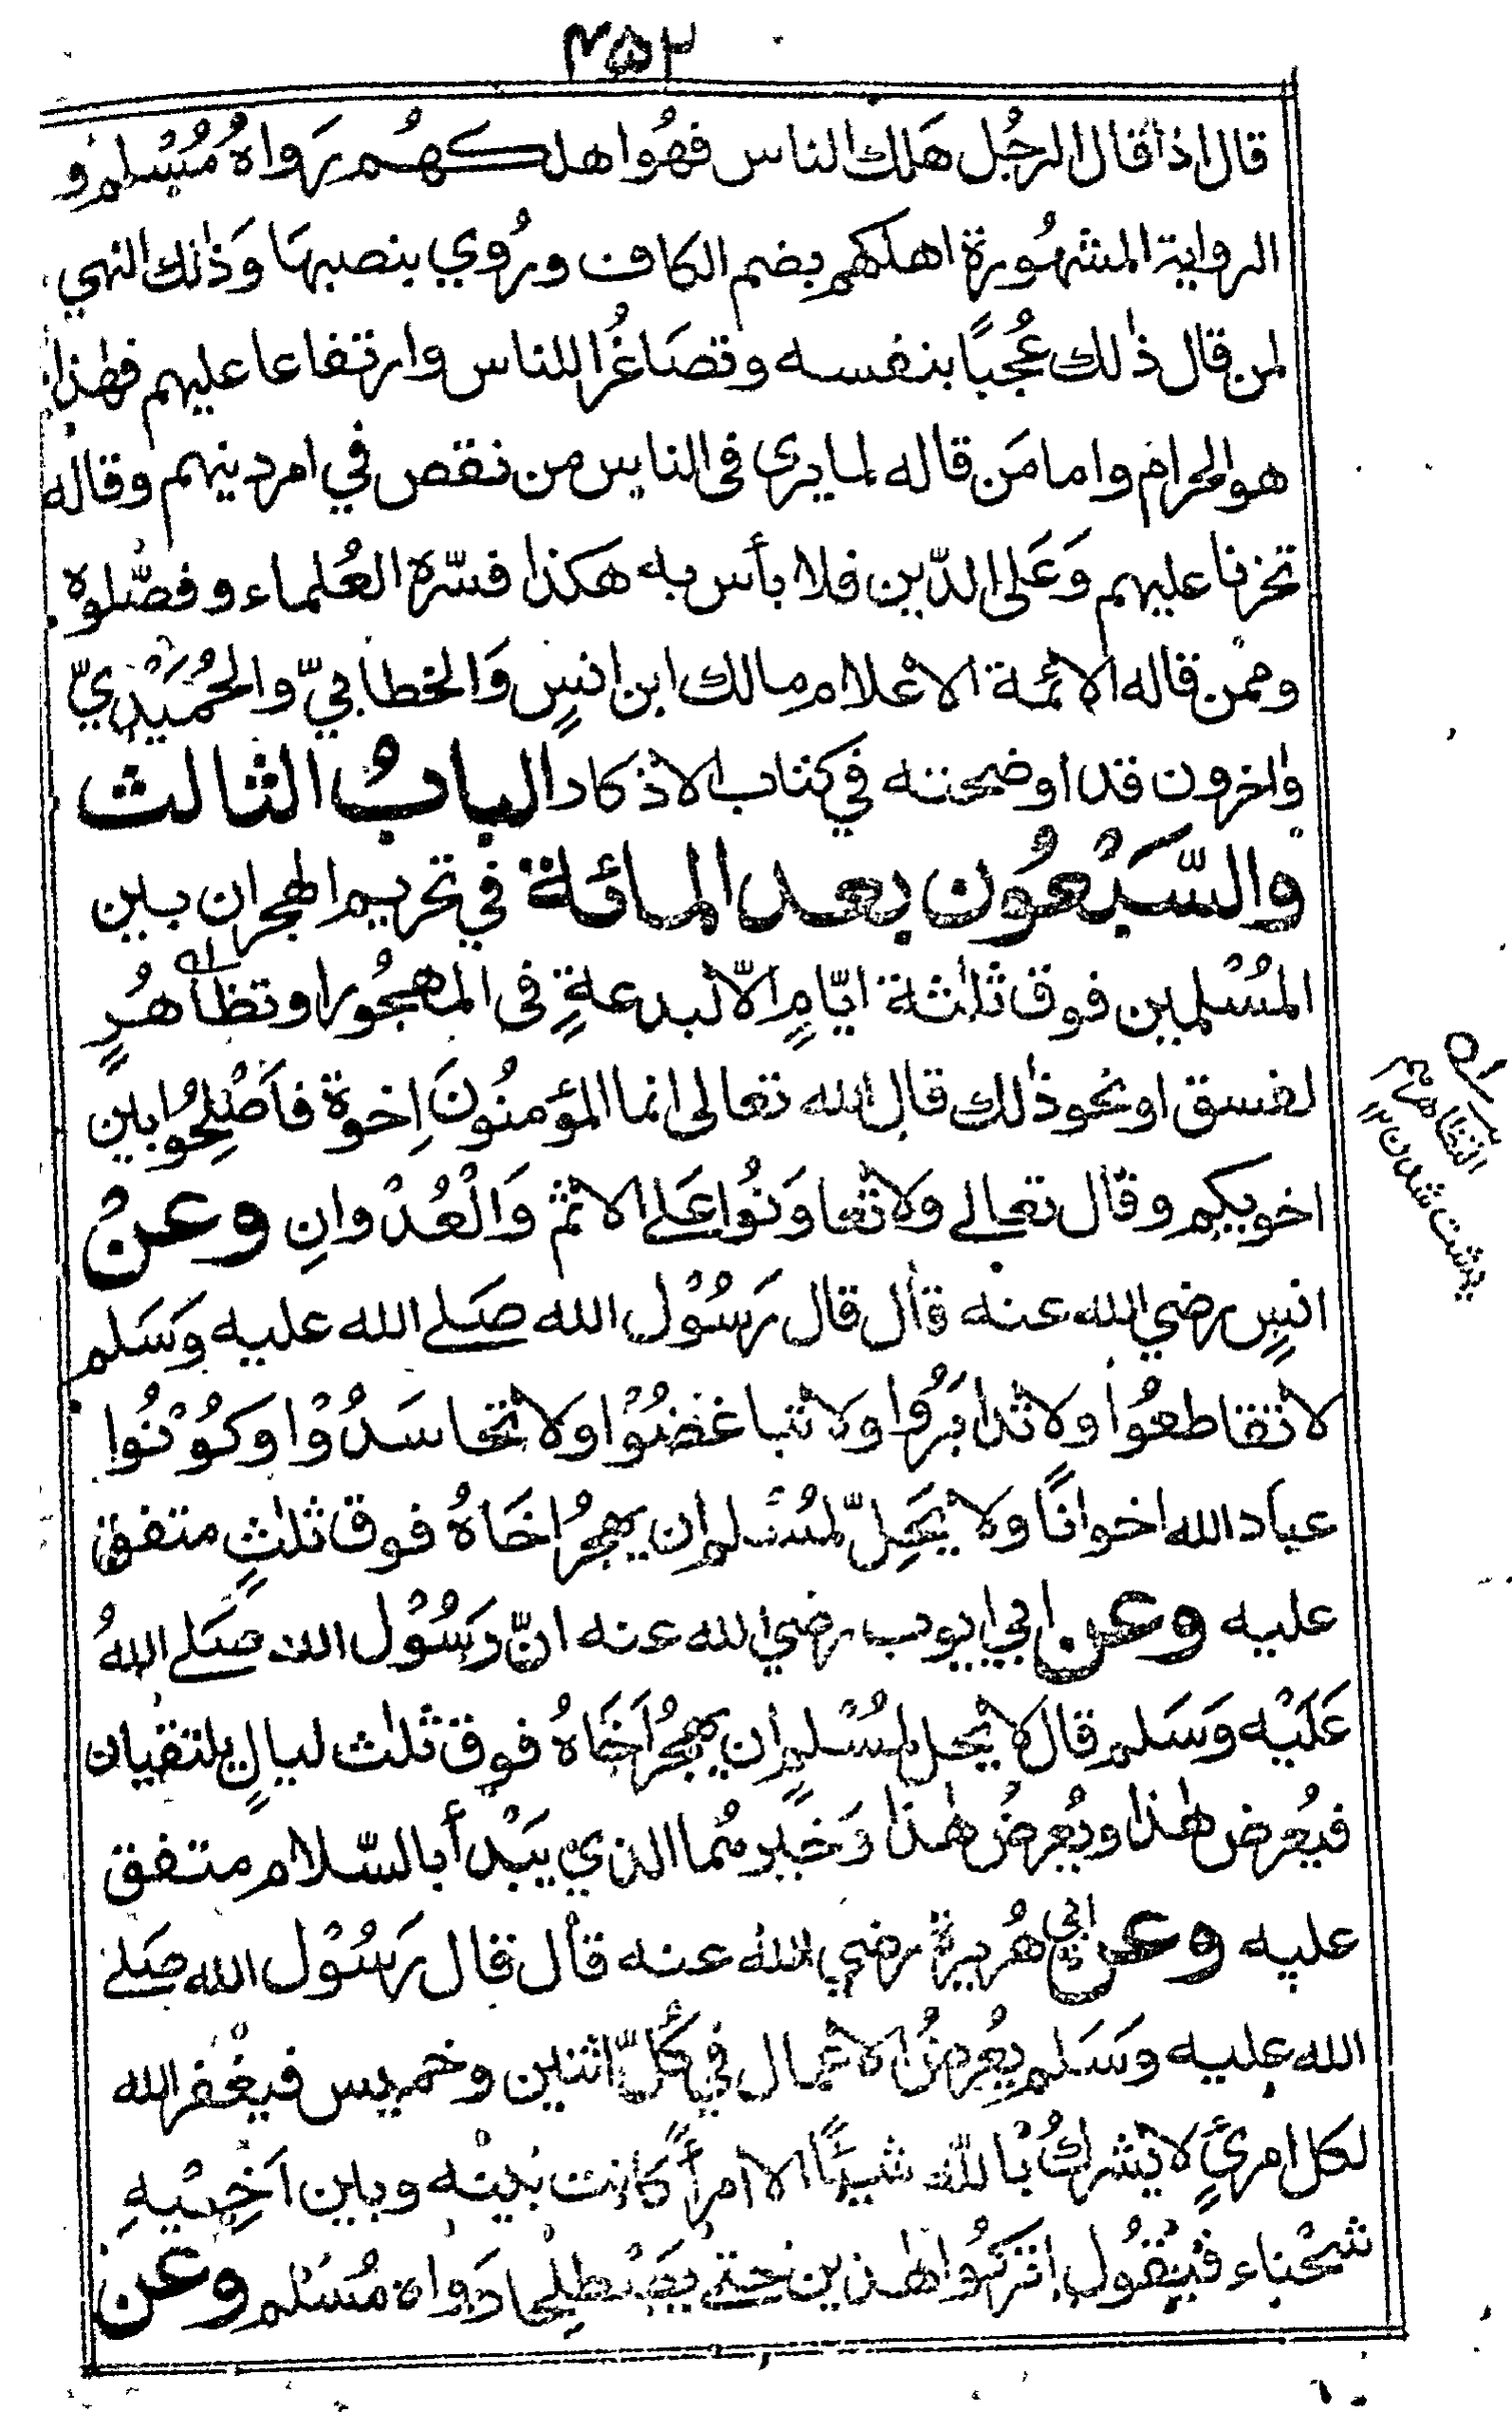 ۴۵۲
قال اذا قال الرجُل هَلك الناس فهُو اهلكهُم رَواهُ مُسْلم و
الرواية المشهُورة اهلكهم بضم الكاف ورُوي بنصبها وَذٰلك النهي
لمن قال ذٰلك عُجبًا بنفسه وتصَاغُرا للناس وارتفاعا عليهم فهٰذا
هو الحرام واما مَن قاله لما يرى فى الناس من نقص في امر دينهم وقاله
تحزنا عليهم وَعَلى الدّين فلا بأس به هكذا فسّره العُلماء وفصّلوه
وممن قاله الائمة الاعْلام مالك ابن انسٍ وَالخطابيّ والحُمَيْديّ
واٰخرون قد اوضحته في كتاب الاذكار البابُ الثالث
والسَّبْعُون بعد المائة في تحريم الهجران بين
المسُلمين فوق ثلٰثة ايّامٍ الّا لبدعةٍ فى المهجُور او تظاهُرٍ
لفسق او نحو ذٰلك قال الله تعالى انما المؤمنُونَ اِخوة فاَصْلِحُوا بين
اخويكم وقال تعالے ولا تعاوَنُوا عَلے الاثم وَالْعُدْوانِ وعنْ
انسٍ رضي الله عنه قال قال رَسُوْل الله صَلے الله عليه وَسَلم
لا تقاطعُوا ولا تدابَرُوا ولا تباغضُوْا ولا تحاسَدُوْا وكُوْنُوا
عباد الله اخوانًا ولا يَحِلّ لمسُلم ان يهجُر اخَاهُ فوق ثلٰثٍ متفق
عليه وعن ابي ايوب رضي الله عنه انّ رَسُوْل الله صَلے اللهُ
عَلَيْه وَسَلم قال لا يحل لمسُْلمٍ ان يهجُر اَخَاهُ فوق ثلٰث ليالٍ يلتقيان
فيُعرض هٰذا ويُعرضُ هٰذا وَخيرهُما الذي يَبْدأ بالسّلام متفق
عليه وعن ابي هُريرة رضي الله عنه قال قال رَسُوْل الله صَلے
الله عليه وسَلم يُعرضُ الاعمال في كُلّ اثنين وخميس فيغْفر الله
لكل امرئٍ لا يشركُ بالله شيئًا الا امرأً كانت بينه وبين اَخِيْهِ
شحْناء فيقُول اتركُوا هٰذين حتے يصْطلِحا رَواه مُسْلم وعن
التظاهر
پشت شدن ۱۲